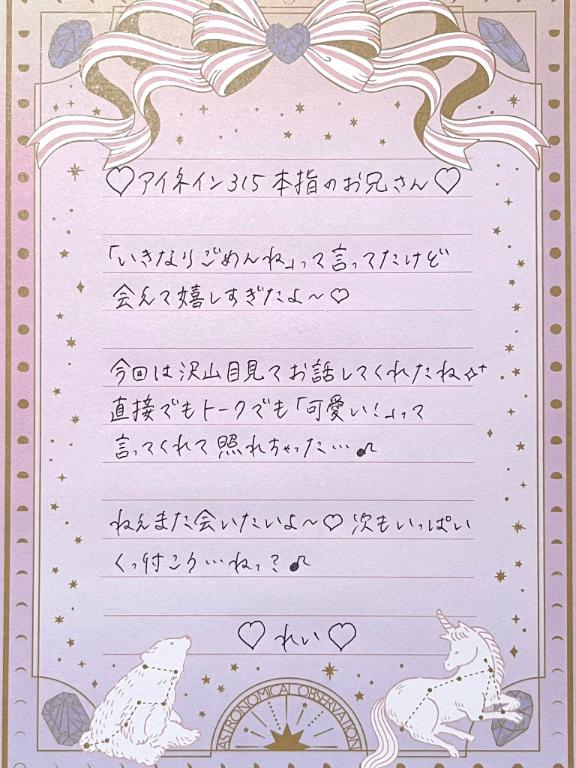 ♡アイネイン315 本指のお兄さん♡
「いきなりごめんね」って言ってたけど
会えて嬉しすぎたよ〜♡
今回は沢山目見てお話してくれたね✧⁺
直接でもトークでも「可愛い！」って
言ってくれて照れちゃった…♪
ねえまた会いたいよ〜♡次もいっぱい
くっ付こう…ねっ？♪
♡れい♡
ASTRONOMICAL OBSERVATION